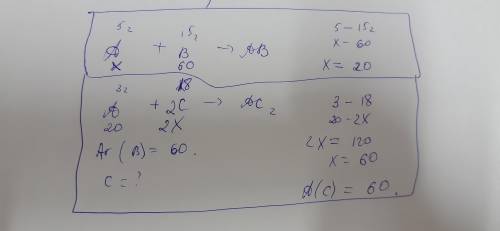 5г 15г
A + B → AB
x 60
5 – 15г
x – 60
x = 20
3г 18
A + 2C → AC₂
20 2x
Ar (B) = 60.
C = ?
3 – 18
20 – 2x
2x = 120
x = 60
A(C) = 60.